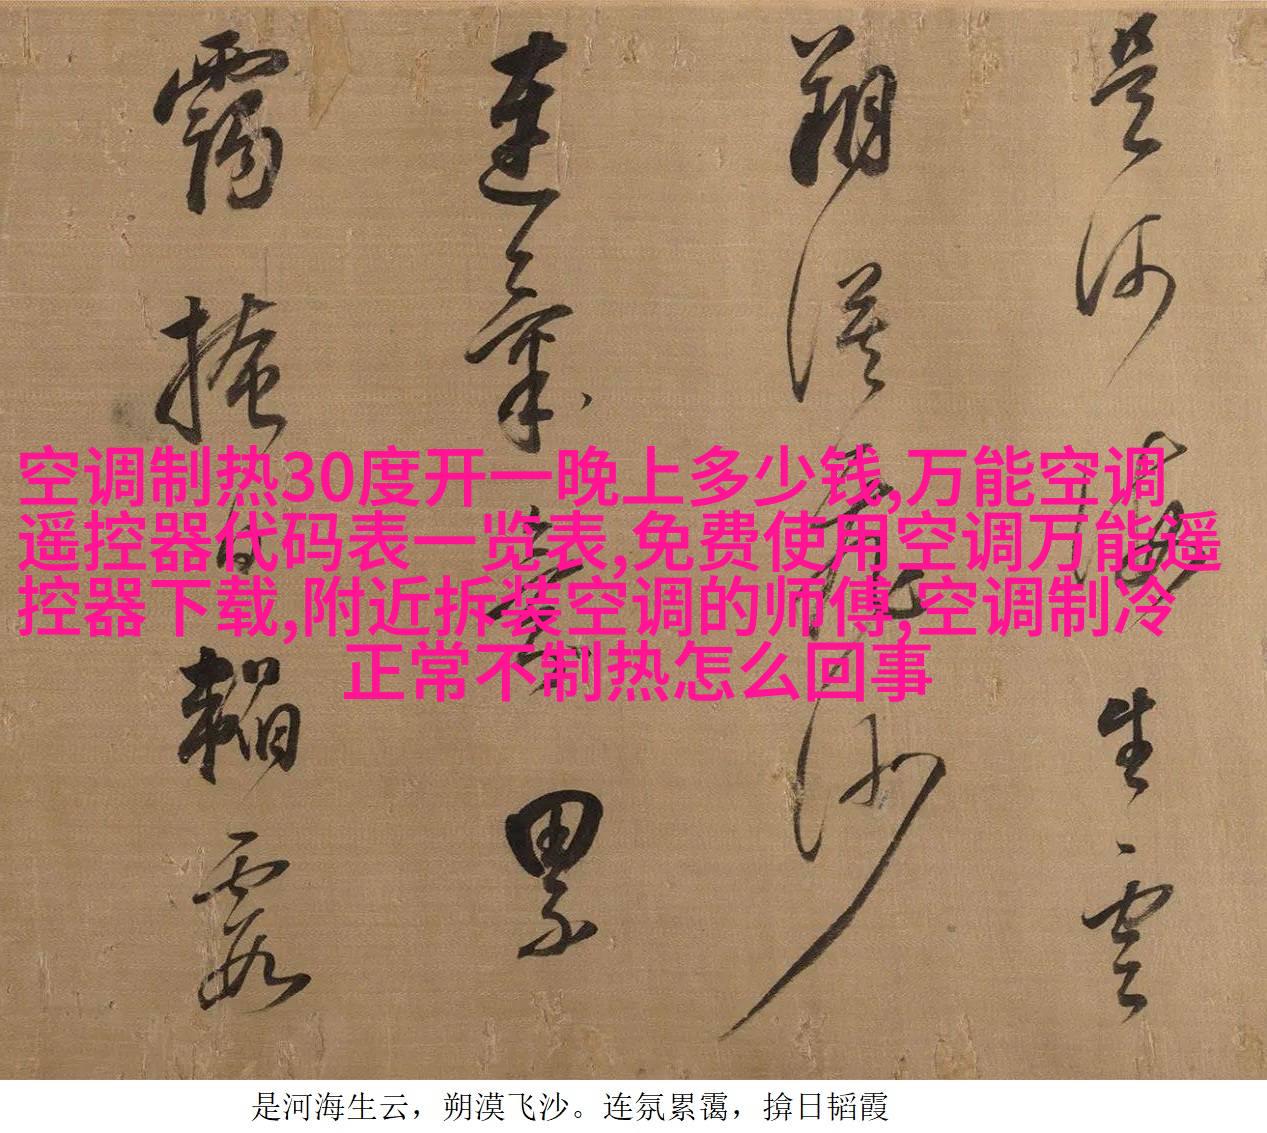 是河海生云
朔漠飞沙
连氛累
霭掩日韬霞
空调制热30度开一晚上多少钱,万能空调
遥控器代码表一览表,免费使用空调万能遥
控器下载,附近拆装空调的师傅,空调制冷
正常不制热怎么回事
是河海生云，朔漠飞沙。连氛累霭，揜日韬霞